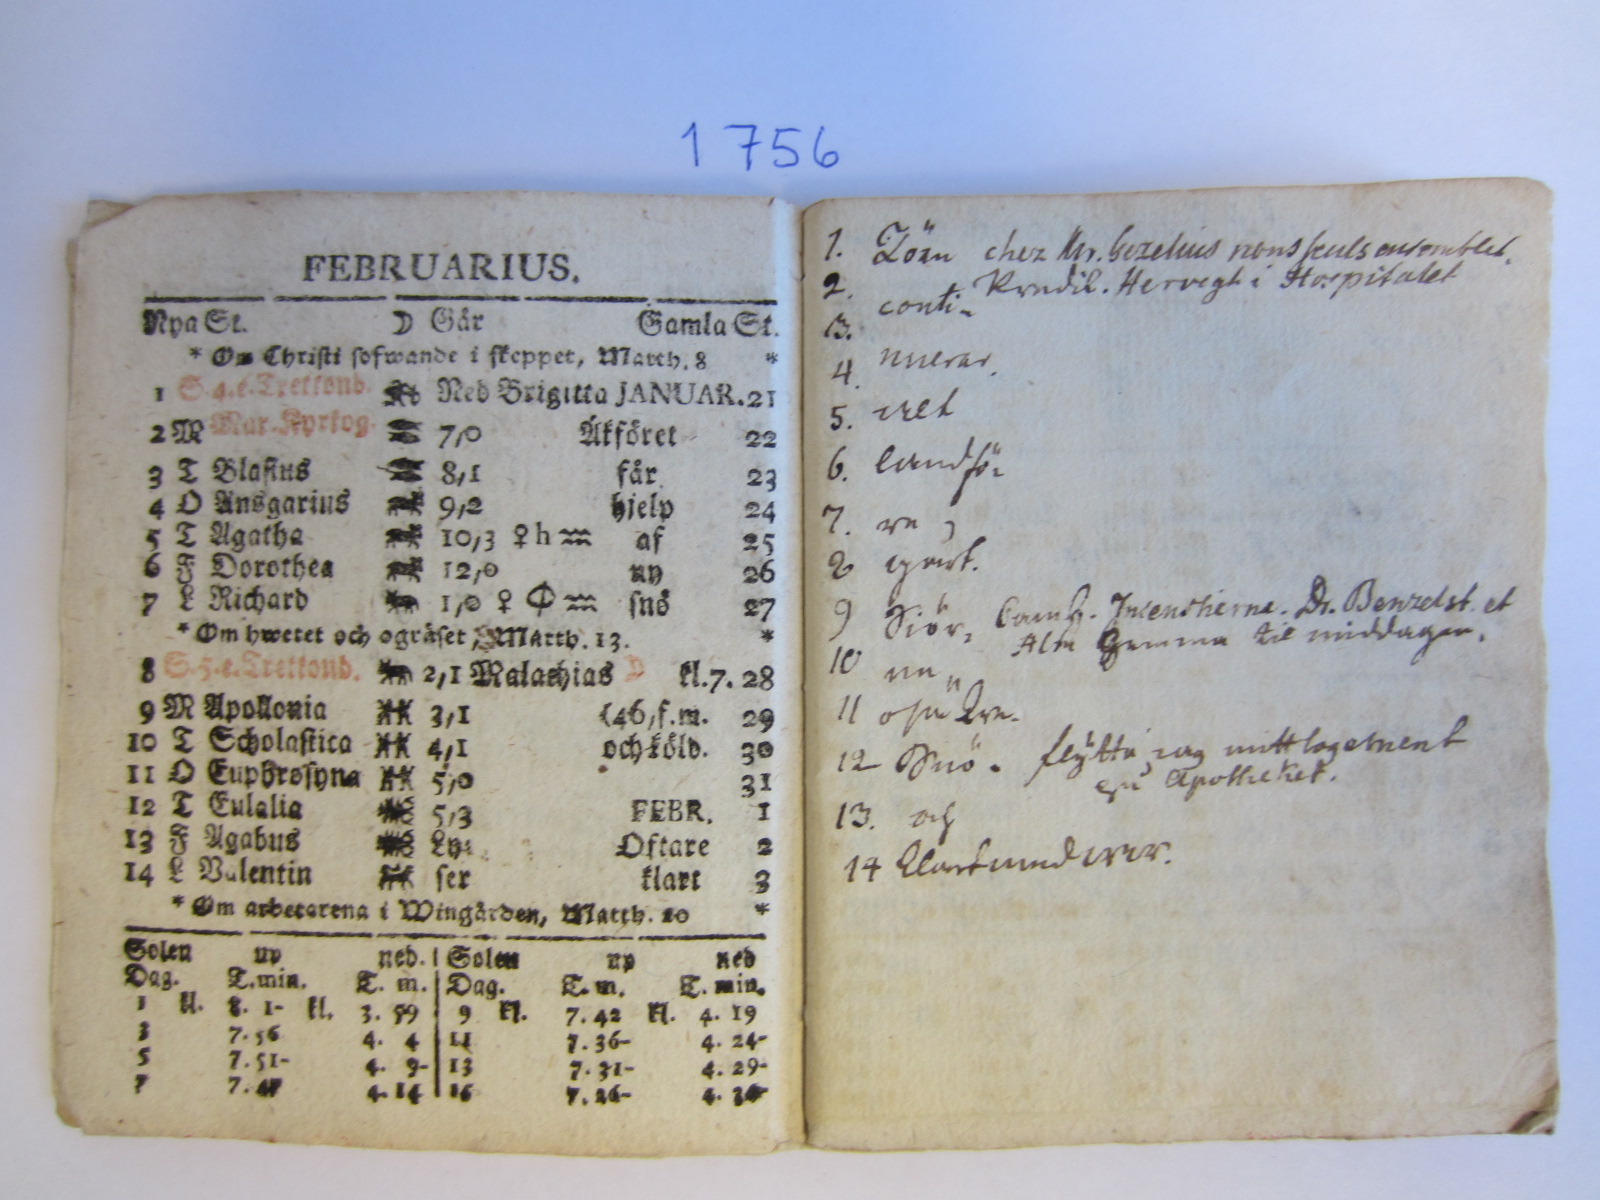 1756
FEBRUARIUS.
Nya St. ☽ Går Gamla St.
* Om Christi sofwande i skeppet, Matth. 8 *
1 S. 4. e. Trettond. Ned Brigitta JANUAR. 21
2 M Mar. Kyrkog. 7,0 Åkföret 22
3 T Blasius 8,1 får 23
4 O Ansgarius 9,2 hjelp 24
5 T Agatha 10,3 ♀ h ♒ af 25
6 F Dorothea 12,0 ny 26
7 L Richard 1,0 ♀ ♒ snö 27
* Om hwetet och ogräset, Matth. 13. *
8 S. 5. e. Trettond. 2,1 Malachias kl. 7. 28
9 M Apollonia 3,1 (46, f. m. 29
10 T Scholastica 4,1 och köld. 30
11 O Euphrosyna 5,0 31
12 T Eulalia 5,3 FEBR. 1
13 F Agabus Ly- Oftare 2
14 L Valentin ser klart 3
* Om arbetarena i Wingården, Matth. 20 *
Solen up ned. Solen up ned
Dag. T. min. T. m. Dag. T. m. T. min.
1 kl. 8. 1- kl. 3. 59 9 kl. 7. 42 kl. 4. 19
3 7. 56 4. 4 11 7. 36- 4. 24-
5 7. 51- 4. 9- 13 7. 31- 4. 29-
7 7. 47 4. 14 7. 26-
1. chez Mr. Gezelius nous seuls
2. conti- Hervegh i Hospitalet
3.
4. nuerar.
5. slet
6. landfö-
7. re,
8
9
10 til middagen.
11
12 Snö. flytta jag mitt logement
Apotheket.
13. och
14 Klart